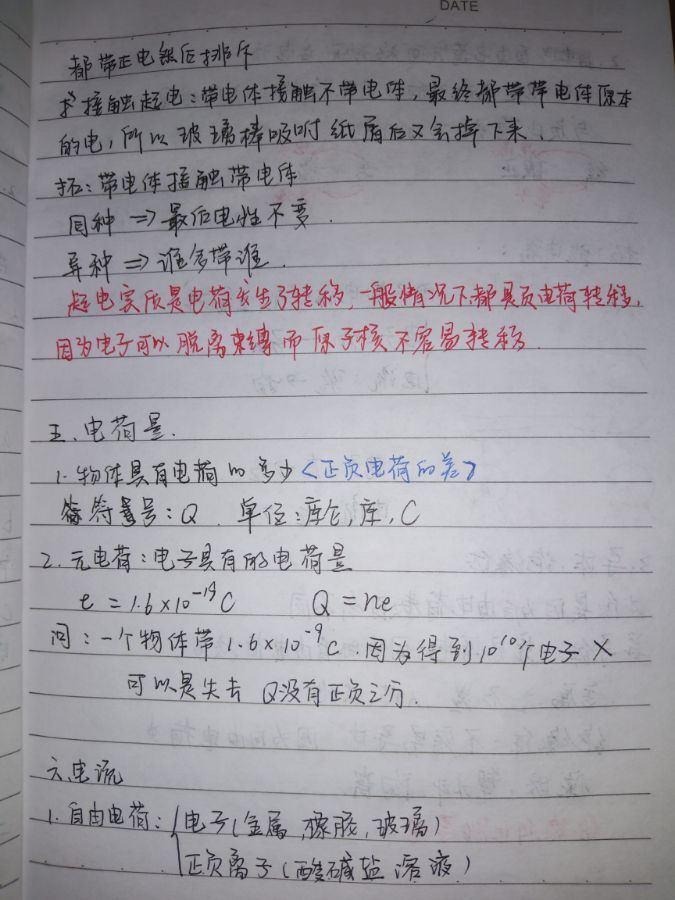 DATE
都带正电然后排斥
接触起电：带电体接触不带电体，最终都带带电体原本
的电，所以玻璃棒吸附纸屑后又会掉下来
拓：带电体接触带电体
同种 => 最后电性不变.
异种 => 谁多带谁.
起电实质是电荷发生了转移，一般情况下都是负电荷转移，
因为电子可以脱离束缚而原子核不容易转移.
五.电荷量.
1.物体具有电荷的多少<正负电荷的差>
符号：Q. 单位：库仑，库，C
2.元电荷：电子具有的电荷量
e=1.6×10⁻¹⁹C Q=ne
问：一个物体带1.6×10⁻⁹C.因为得到10¹⁰个电子 ×
可以是失去 Q没有正负之分.
六.电流
1.自由电荷：{电子(金属,橡胶,玻璃)
正负离子(酸碱盐溶液)